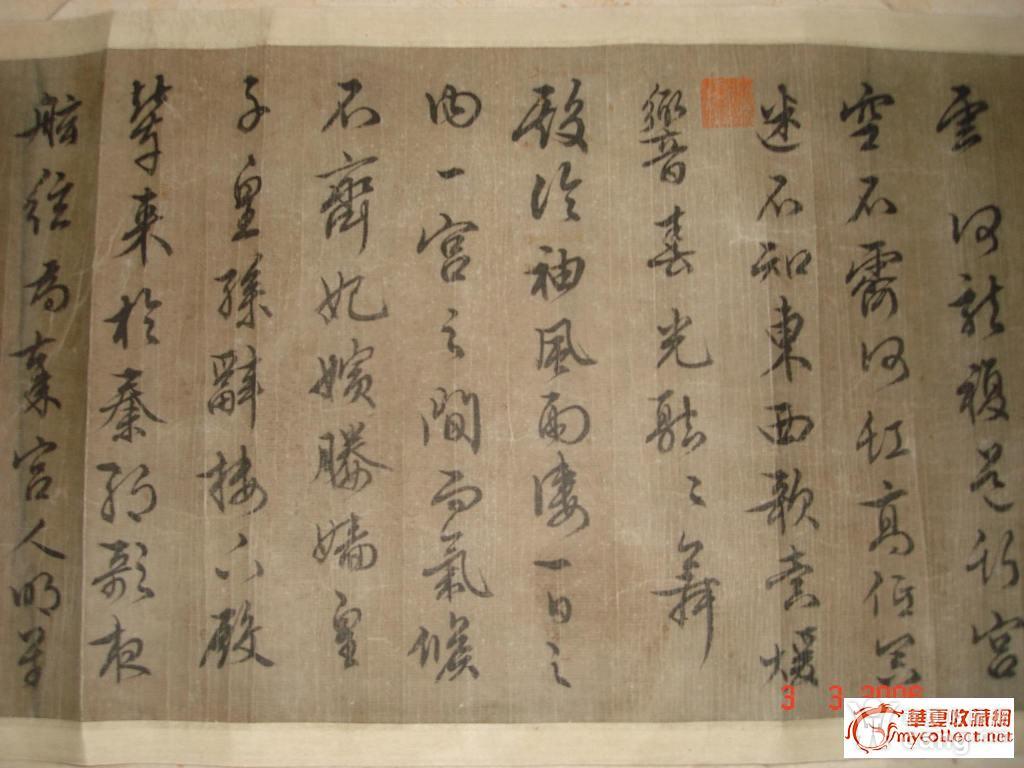 雲何龍複道行宮
空不霽何虹高低冥
迷不知東西歌臺煖
響春光融〻舞
殿冷袖風雨凄一日之
內一宮之間而氣候
不齊妃嬪媵嬙皇
子皇孫辭樓下殿
輦來於秦朝歌夜
絃為秦宮人明星
3 3 2006
華夏收藏網
mycollect.net